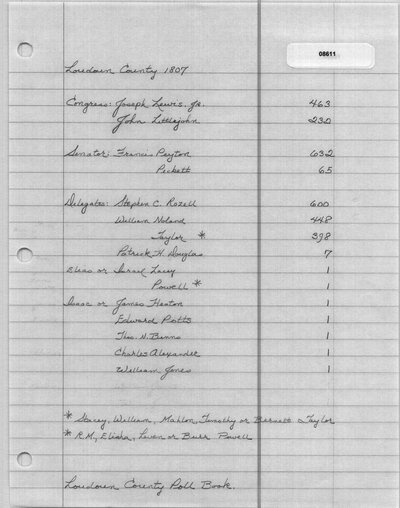 08611
Loudoun County 1807
Congress: Joseph Lewis, Jr. 463
John Littlejohn 230
Senator: Francis Peyton 632
Pickett 65
Delegates: Stephen C. Rozell 600
William Noland 448
Taylor * 398
Patrick H. Douglas 7
Elias or Israel Lacey 1
Powell * 1
Isaac or James Heaton 1
Edward Potts 1
Thos. N. Binns 1
Charles Alexander 1
William Jones 1
* Stacey, William, Mahlon, Timothy or Bernard Taylor
* R.M., Elisha, Leven or Burr Powell
Loudoun County Poll Book.